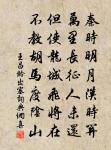 秦時明月漢時關
萬里長征人未還
但使龍城飛將在
不教胡馬度陰山
王昌齡出塞詞典網書